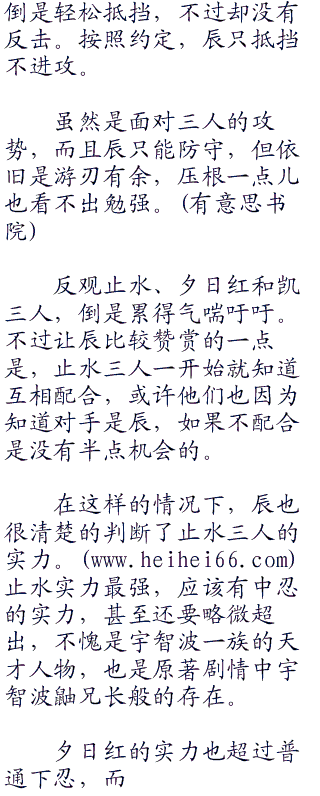 倒是轻松抵挡，不过却没有
反击。按照约定，辰只抵挡
不进攻。
虽然是面对三人的攻
势，而且辰只能防守，但依
旧是游刃有余，压根一点儿
也看不出勉强。(有意思书
院)
反观止水、夕日红和凯
三人，倒是累得气喘吁吁。
不过让辰比较赞赏的一点
是，止水三人一开始就知道
互相配合，或许他们也因为
知道对手是辰，如果不配合
是没有半点机会的。
在这样的情况下，辰也
很清楚的判断了止水三人的
实力。(www.heihei66.com)
止水实力最强，应该有中忍
的实力，甚至还要略微超
出，不愧是宇智波一族的天
才人物，也是原著剧情中宇
智波鼬兄长般的存在。
夕日红的实力也超过普
通下忍，而